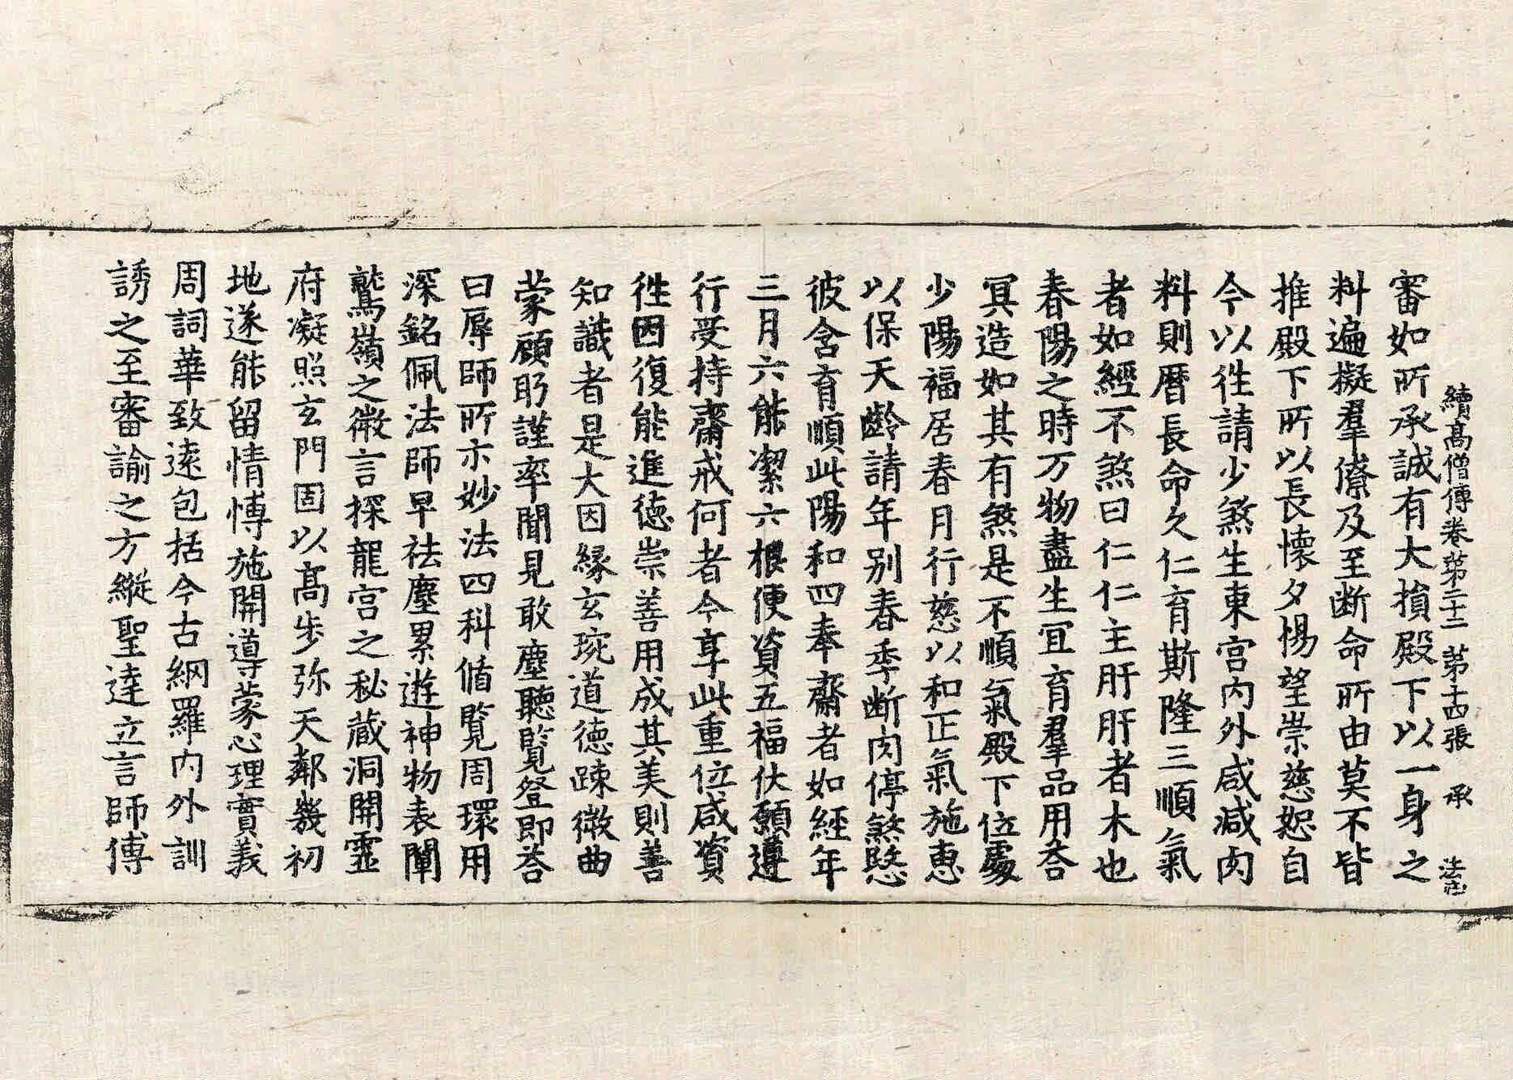 續高僧傳卷第二十二 第十四張 承 法志
審如所承誠有大損殿下以一身之
料遍擬羣僚及至断命所由莫不皆
推殿下所以長懷夕惕望崇慈恕自
今以徃請少煞生東宮内外咸減肉
料則曆長命久仁育斯隆三順氣
者如經不煞曰仁仁主肝肝者木也
春陽之時万物盡生冝育羣品用荅
冥造如其有煞是不順氣殿下位處
少陽福居春月行慈以和正氣施恵
以保天齡請年别春季断肉停煞慜
彼含育順此陽和四奉齋者如經年
三月六能潔六根便資五福伏願遵
行受持齋戒何者今享此重位咸資
徃因復能進徳崇善用成其美則善
知識者是大因縁玄琬道徳踈微曲
蒙顧眄謹率聞見敢塵聽覽登即荅
曰辱師所示妙法四科循覧周環用
深銘佩法師早祛塵累遊神物表闡
鷲嶺之微言探龍宫之秘蔵洞開霊
府凝照玄門固以髙步弥天鄰幾初
地遂能留情博施開導蒙心理實義
周詞華致遠包括今古網羅内外訓
誘之至審諭之方縱聖達立言師傅